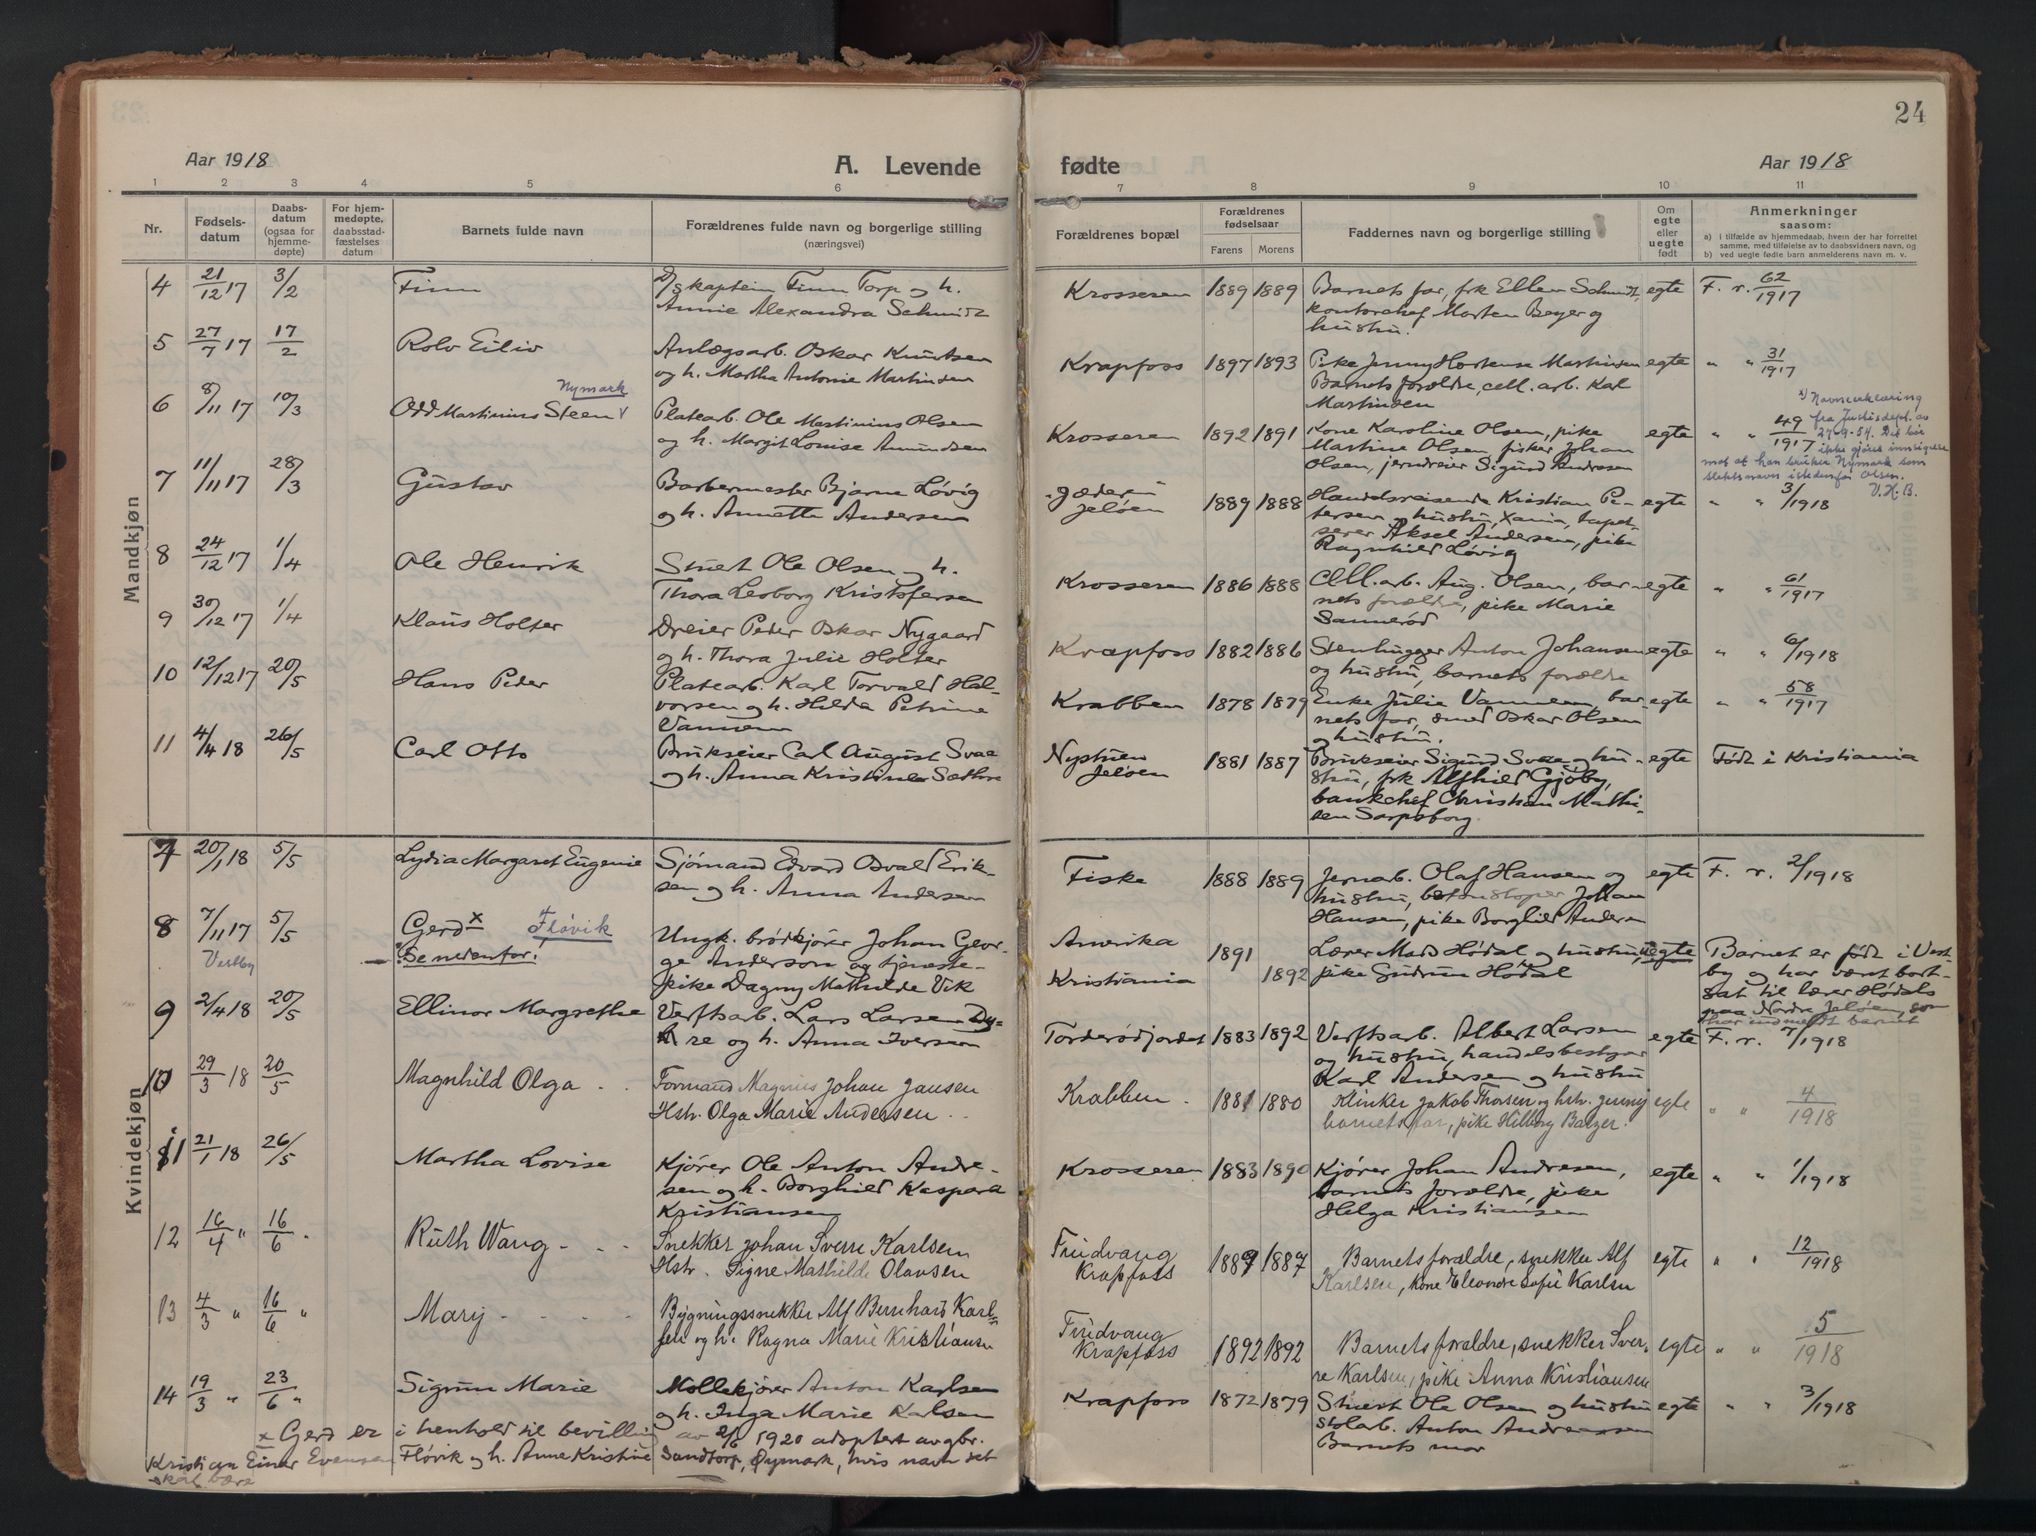 24
Aar 1918
A. Levende fødte
Aar 1918
1 2 3 4 5 6 7 8 9 10 11
Nr.
Fødsels-
datum
Daabs-
datum
(ogsaa for
hjemme-
døpte)
For hjem-
medøpte,
daabsstad-
fæstelses
datum
Barnets fulde navn
Forældrenes fulde navn og borgerlige stilling
(næringsvei)
Forældrenes bopæl
Forældrenes
fødselsaar
Farens Morens
Faddernes navn og borgerlige stilling
Om
egte
eller
uegte
født
Anmerkninger
saasom:
a) i tilfælde av hjemmedaab, hvem der har forrettet
samme, med tilføielse av to daabsvidners navn, og
b) ved uegte fødte barn anmelderens navn m. v.
Mandkjøn
4 21/12 17 3/2 Finn
D/skaptein Finn Torp og h.
Annie Alexandra Schmidt
Krosseren 1889 1889
Barnets far, frk Ellen Schmidt,
kontorchef Morten Beyer og
hustru.
egte F. r. 62/1917
5 27/7 17 17/2 Rolv Eiliv
Anlægsarb. Oskar Knutsen
og h. Martha Antonie Martinsen
Krapfoss 1897 1893
Pike Jenny Hortense Martinsen
Barnets forældre, cell. arb. Karl
Martinsen
egte " " 31/1917
6 8/11 17 10/3 Odd Martinius Steen √
Nymark
Platearb. Ole Martinius Olsen
og h. Margit Louise Amundsen
Krosseren 1892 1891
Kone Karoline Olsen, pike
Martine Olsen, fisker Johan
Olsen, jerndreier Sigurd Andresen
egte " " 49/1917
√) Navneerklæring
fra Justisdept. av
27-9-54. Det bør
ikke gjøres innsigelse
mot at han bruker Nymark som
slektsnavn istedenfor Olsen.
V. H. B.
7 11/11 17 28/3 Gustav
Barbermester Bjarne Løvig
og h. Annette Andersen
Jeløen 1889 1888
Handelsreisende Kristian Pe-
tersen og hustru, Xania, tapet-
serer Aksel Andersen, pike
Ragnhild Løvig
egte " " 3/1918
8 24/12 17 1/4 Ole Henrik
Stuert Ole Olsen og h.
Thora Leoborg Kristofersen
Krosseren 1886 1888
Cell. arb. Aug. Olsen, bar-
nets forældre, pike Marie
Sannerød
egte " " 61/1917
9 30/12 17 1/4 Klaus Holter
Dreier Peder Oskar Nygaard
og h. Thora Julie Holter
Krapfoss 1882 1886
Stenhugger Anton Johansen
og hustru, barnets forældre
egte " " 6/1918
10 12/12 17 20/5 Hans Peder
Platearb. Karl Torvald Hal-
vorsen og h. Hilda Petrine
Vannem
Krabben 1878 1879
Enke Julie Vannem, bar-
nets far, smed Oskar Olsen
og hustru.
egte " " 58/1917
11 4/4 18 26/5 Carl Otto
Brukseier Carl August Svae
og h. Anna Kristine Sæthre
Nystuen
Jeløen
1881 1887
Brukseier Sigurd Svae og hu-
stru, frk Alfhild Gjøby,
bankchef Christian Mathi-
sen Sarpsborg
egte Født i Kristiania
Kvindekjøn
7 20/1 18 5/5 Lydia Margaret Eugenie
Sjømand Edvard Osvald Erik-
sen og h. Anna Andersen
Fiske 1888 1889
Jernarb. Olaf Hansen og
hustru, betonstøper Johan
Hansen, pike Borghild Andersen
egte F. r. 2/1918
8 7/11 17 5/5 Gerd x Fløvik
Vestby
Se nedenfor!
Ungk. brødkjører Johan Geor-
ge Anderson og tjeneste-
pike Dagny Mathilde Vik
Amerika 1891
Kristiania 1892
Lærer Mads Hødal og hustru,
pike Gudrun Hødal
uegte
Barnet er født i Vest-
by og har været bort-
sat til lærer Hødals
paa Nordre Jeløen, som
har indmeldt barnet
9 2/4 18 20/5 Ellinor Margrethe
Verftsarb. Lars Larsen Dy-
re og h. Anna Iversen
Torderødjordet 1883 1892
Verftsarb. Albert Larsen
og hustru, handelsbestyrer
Karl Andersen og hustru
egte F. r. 7/1918
10 29/3 18 20/5 Magnhild Olga
Formand Magnus Johan Jansen
Hstr. Olga Marie Andersen
Krabben 1881 1880
Klinker Jakob Thorsen og hstr. Jenny
barnets far, pike Hilborg Balzer.
egte " " 4/1918
11 21/1 18 26/5 Martha Lovise
Kjører Ole Anton Andre-
sen og h. Borghild Kaspara
Kristiansen
Krosseren 1883 1890
Kjører Johan Andresen,
barnets forældre, pike
Helga Kristiansen
egte " " 1/1918
12 16/4 " 16/6 Ruth Wang
Snekker Johan Sverre Karlsen
Hstr. Signe Mathilde Olavsen
Frydvang
Krapfoss
1889 1887
Barnets forældre, snekker Alf
Karlsen, kone Eleonore Sofie Karlsen
egte " " 12/1918
13 4/3 " 16/6 " Mary
Bygningssnekker Alf Bernhard Karl-
sen og h. Ragna Marie Kristiansen
Frydvang
Krapfoss
1892 1892
Barnets forældre, snekker Sver-
re Karlsen, pike Anna Kristiansen
egte " " 5/1918
14 19/3 " 23/6 " Sigrun Marie
Møllekjører Anton Karlsen
og h. Inga Marie Karlsen
Krapfoss 1872 1879
Stuert Ole Olsen og hustru
stolarb. Anton Andreassen
Barnets mor
egte " " 3/1918
x Gerd er i henhold til bevilling av 2/6 1920 adoptert av gbr.
Kristian Einar Evensen Fløvik og h. Anne Kristine Sandtorp, Øymark, hvis navn det
skal bære